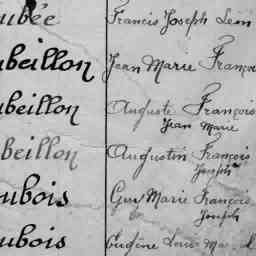 ubée Francis Joseph Léon
ubeillon Jean Marie Franço
ubeillon Auguste François
Jean Marie
beillon Augustin François
Joseph
ubois Guy Marie François
Joseph
ubois Eugène Louis